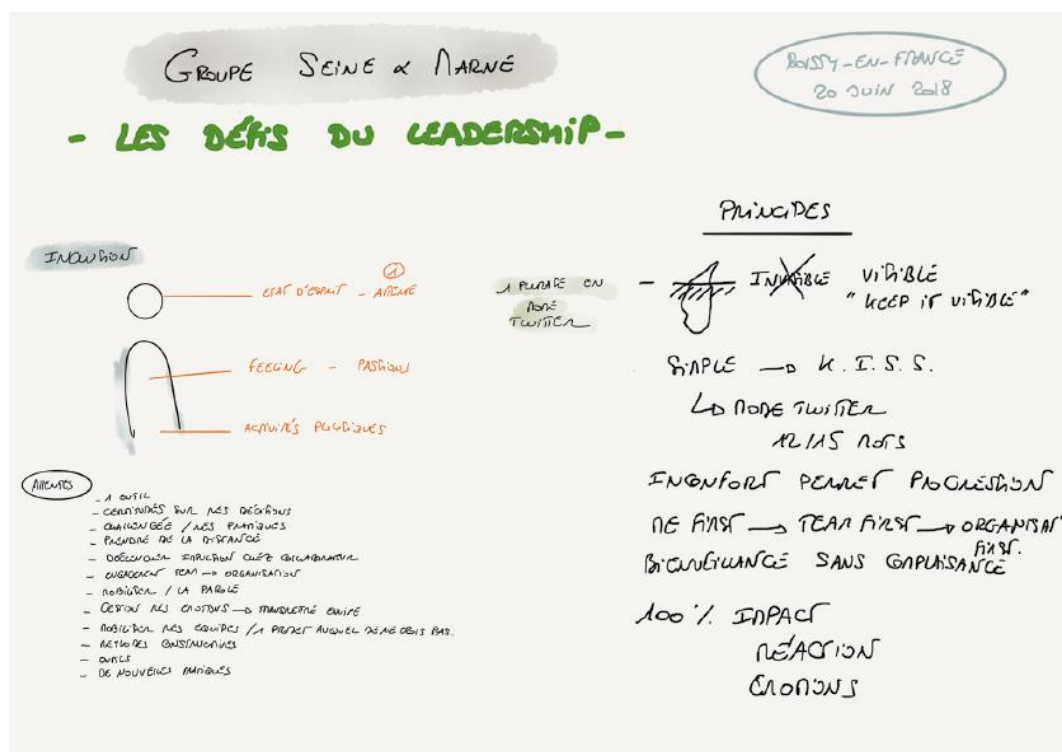 GROUPE SEINE & MARNE
ROISSY-EN-FRANCE
20 JUIN 2018
- LES DÉFIS DU LEADERSHIP -
INCLUSION
ETAT D'ESPRIT - ATTENTE
①
FEELING - PASSIONS
ACTIVITÉS
1 PHRASE EN
MODE
TWITTER
ATTENTES
- 1 OUTIL
- CERTITUDES SUR MES DÉCISIONS
- CHALLENGÉE / MES PRATIQUES
- PRENDRE DE LA DISTANCE
- DÉCLENCHER CHEZ COLLABORATEUR
- ENGAGEMENT TEAM → ORGANISATION
- MOBILISER / LA PAROLE
- GESTION MES EMOTIONS → TRANSMETTRE EQUIPE
- MOBILISER MES EQUIPES / 1 PROJET AUQUEL JE NE CROIS PAS.
- METHODES CONSTRUCTIVES
- OUTILS
- DE NOUVELLES PRATIQUES
PRINCIPES
- INVISIBLE VISIBLE
"KEEP IT VISIBLE"
SIMPLE → K.I.S.S.
↳ MODE TWITTER
12/15 MOTS
INCONFORT PERMET PROGRESSION
ME FIRST → TEAM FIRST → ORGANISAT
FIRST.
BIENVEILLANCE SANS COMPLAISANCE
100% IMPACT
RÉACTION
EMOTIONS